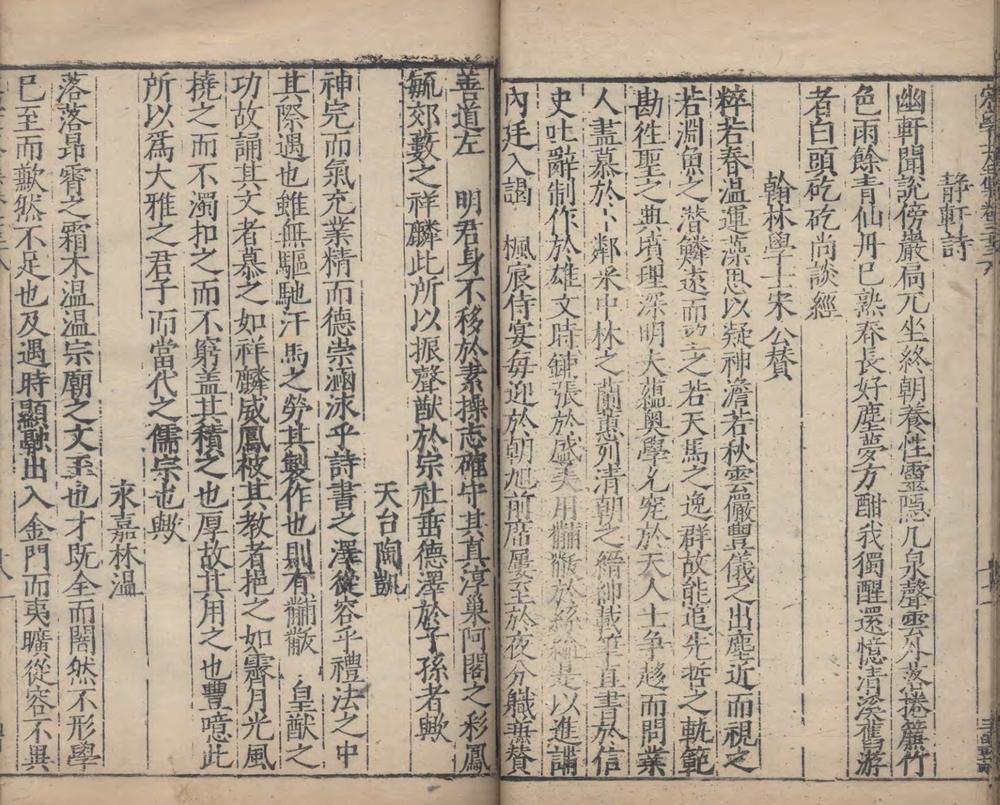 靜軒詩
幽軒聞說傍巖扃兀坐終朝養性靈隱几泉聲雲外落捲簾竹
色雨餘青仙丹已熟春長好塵夢方酣我獨醒還憶清溪舊游
者白頭矻矻尚談經
翰林學士宋公贊
粹若春溫運藻思以凝神澹若秋雲儼豐儀之出塵近而視之
若淵魚之潛鱗遠而之若天馬之逸群故能追先哲之軌範
勘徃聖之典墳理深明大蘊奧學尤究於天人士爭趍而問業
人盡慕於鄰采中林之蘭蕙列清朝之縉紳載筆直書於信
史吐辭制作於雄文時鋪張於盛美用黼黻於絲綸是以進誦
內廷入謁 楓宸侍宴每迎於朝旭前席屢至於夜分職無贊
善道左 明君身不移於素操志確守其真淳巢阿閣之彩鳳
毓郊藪之祥麟此所以振聲猷於宗社垂德澤於子孫者歟
天台陶凱
神完而氣充業精而德崇涵泳乎詩書之澤從容乎禮法之中
其際遇也雖無驅馳汗馬之勞其製作也則有黼黻 皇猷之
功故誦其文者慕之如祥麟威鳳被其教者挹之如霽月光風
撓之而不濁扣之而不窮盖其積之也厚故其用之也豐噫此
所以爲大雅之君子而當代之儒宗也歟
永嘉林溫
落落昂霄之霜木溫溫宗廟之文玉也才既全而闇然不形學
已至而歉然不足也及遇時顯融出入金門而夷曠從容不異